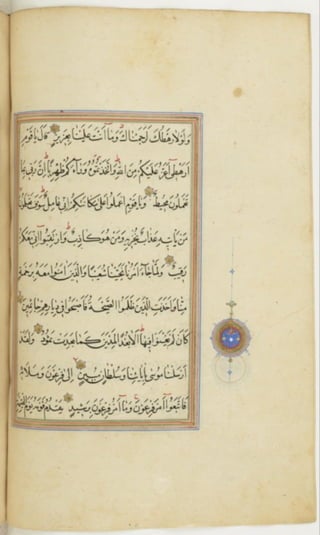 ولولا رهطك لرجمناك وما انت علينا بعزيز قال يا قوم
ارهطى اعز عليكم من الله واتخذتموه وراءكم ظهريا ان ربى بما
تعملون محيط ويا قوم اعملوا على مكانتكم انى عامل سوف تعلمون
من ياتيه عذاب يخزيه ومن هو كاذب وارتقبوا انى معكم
رقيب ولما جاء امرنا نجينا شعيبا والذين امنوا معه برحمة
منا واخذت الذين ظلموا الصيحة فاصبحوا فى ديارهم جاثمين
كان لم يغنوا فيها الا بعدا لمدين كما بعدت ثمود ولقد
ارسلنا موسى باياتنا وسلطان مبين الى فرعون وملائه
فاتبعوا امر فرعون وما امر فرعون برشيد يقدم قومه يوم القيمة